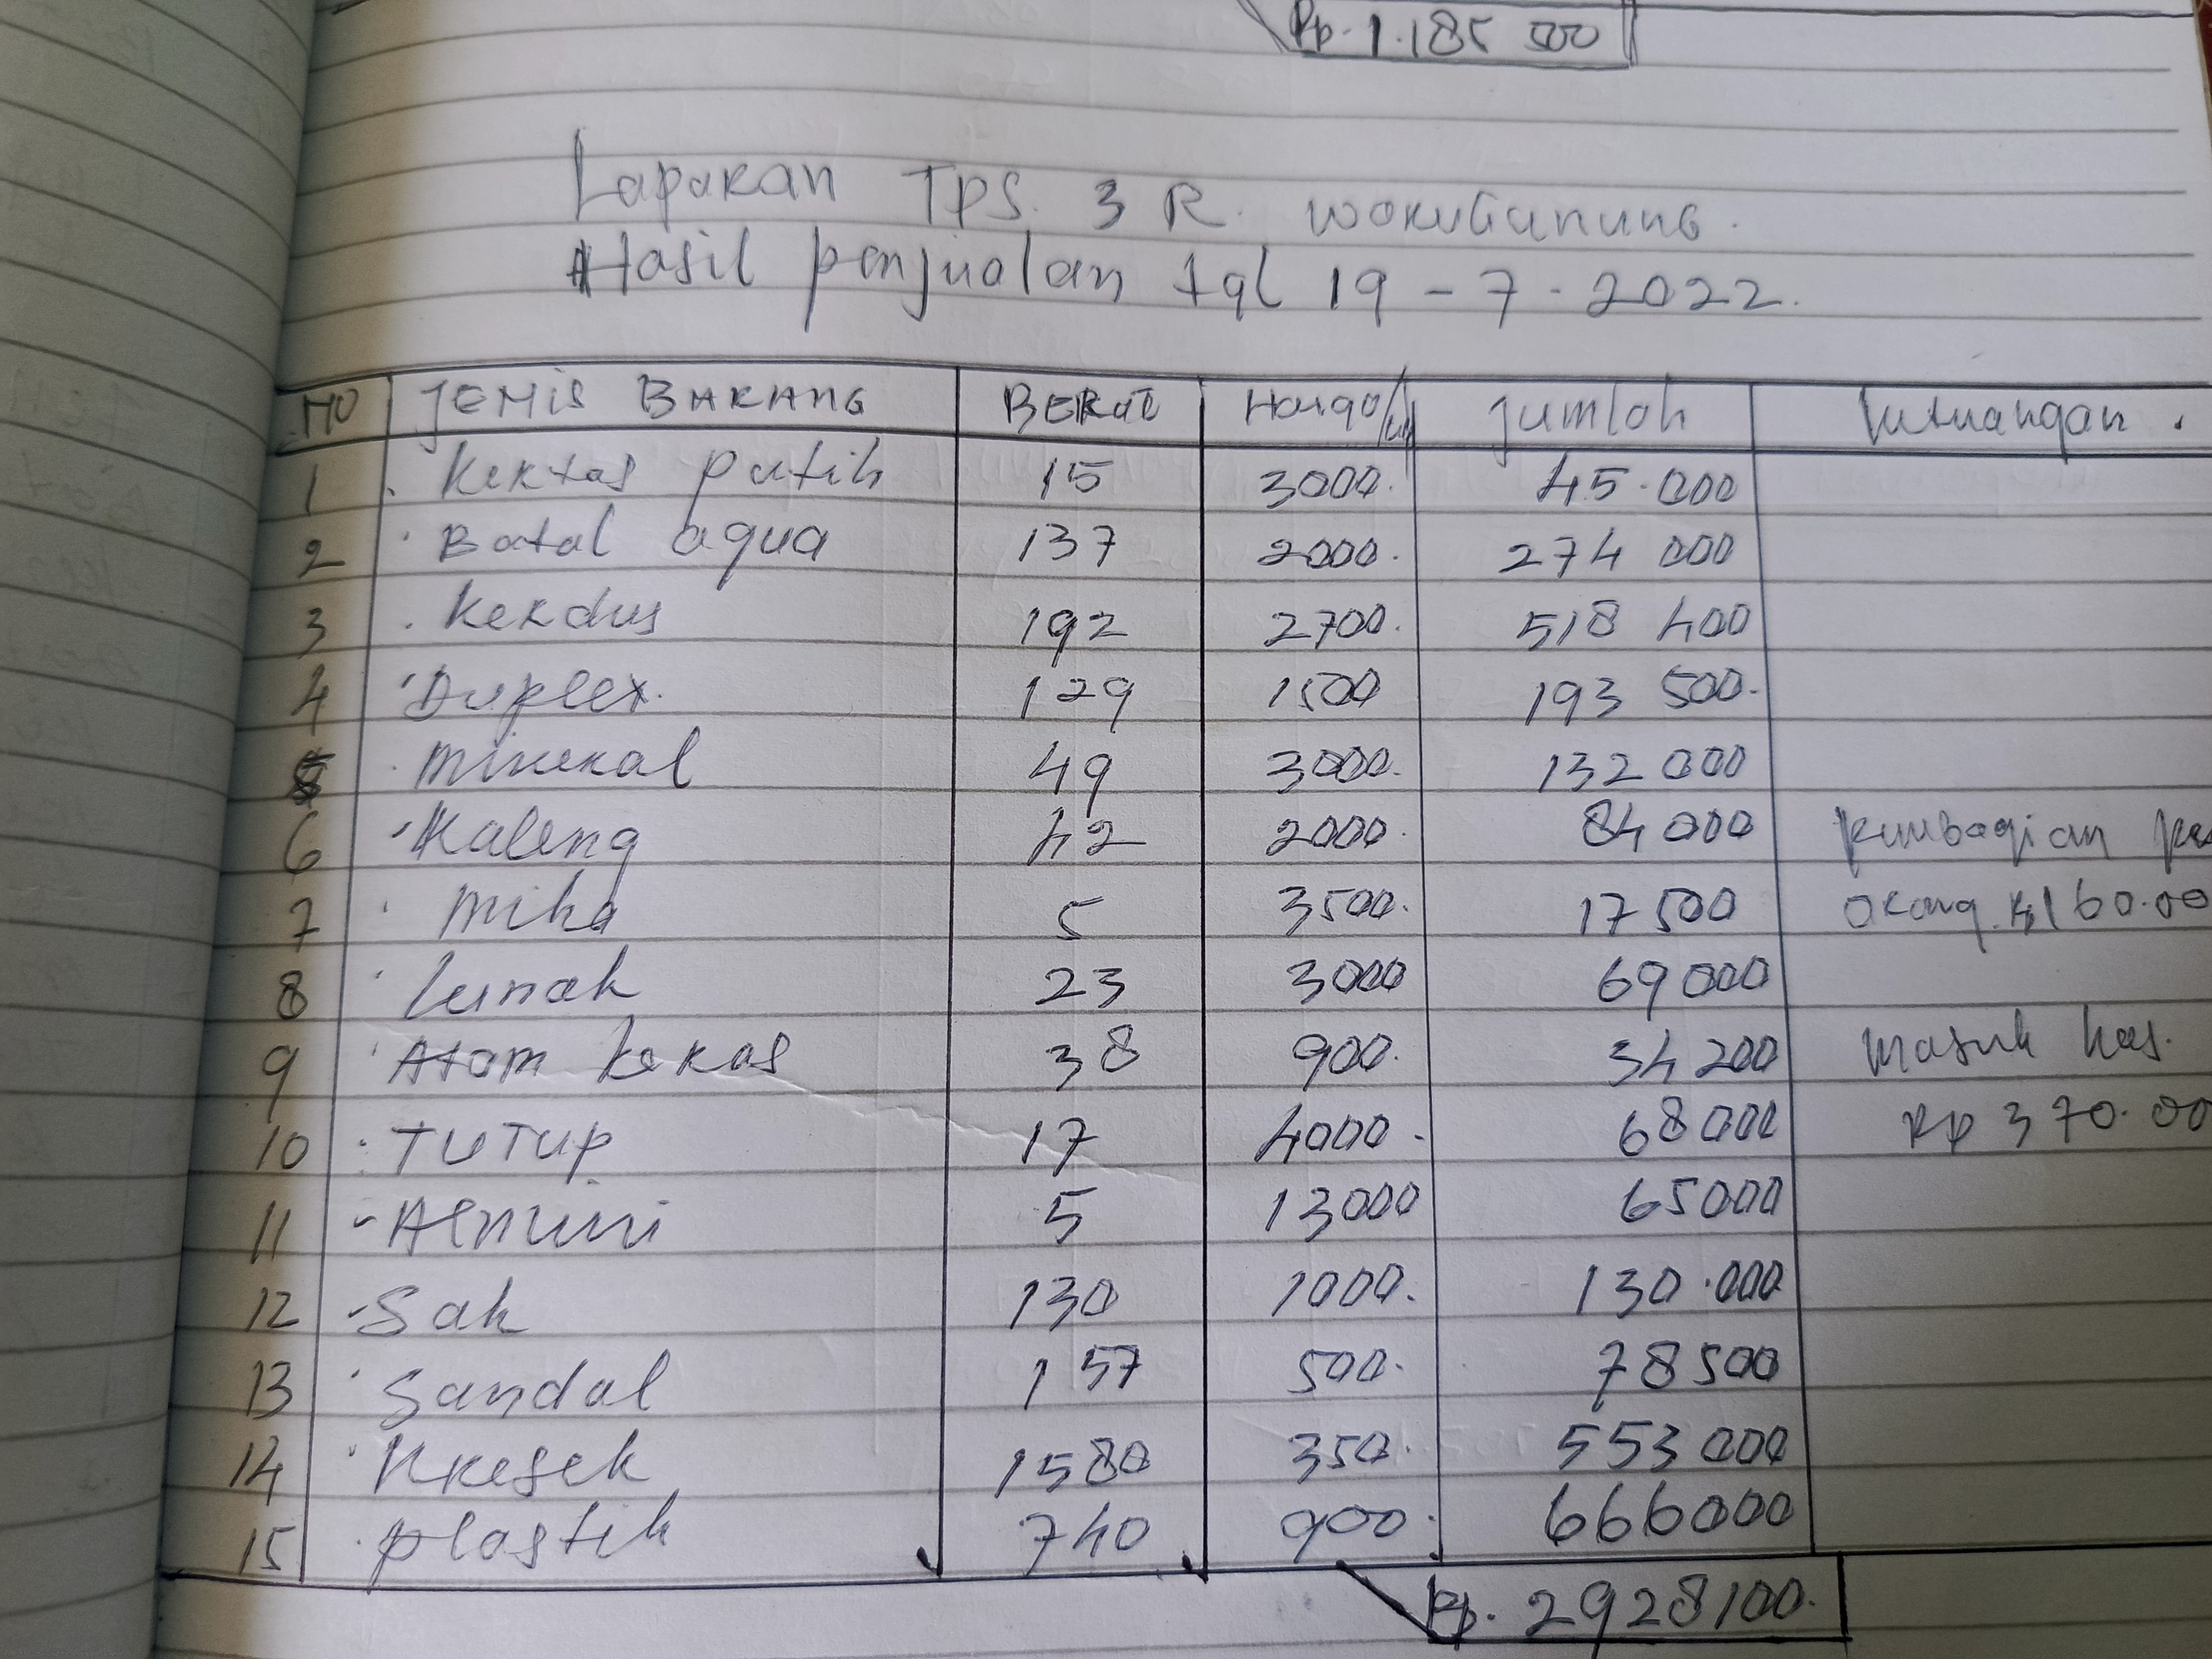 Rp. 1.185 500
Laporan TPS. 3 R.
Hasil penjualan tgl 19 - 7 - 2022.
NO JENIS BARANG BERAT Harga/kg Jumlah keterangan.
1 Kertas putih 15 3000. 45.000
2 Botol aqua 137 2000. 274 000
3 Kerdus 192 2700. 518 400
4 Duplex. 129 1500 193 500.
5 Mineral 49 3000. 132 000
6 Kaleng 42 2000. 84 000 pembagian per
7 Mika 5 3500. 17 500 orang. Rp 160.00
8 Lunak 23 3000 69 000
9 Atom keras 38 900. 34 200 masuk kas.
10 TUTUP 17 4000. 68 000 Rp 370.00
11 5 13000 65000
12 Sak 130 1000. 130.000
13 Sandal 157 500. 78 500
14 Kresek 1580 350. 553 000
15 plastik 740 900. 666000
Rp. 2928100.